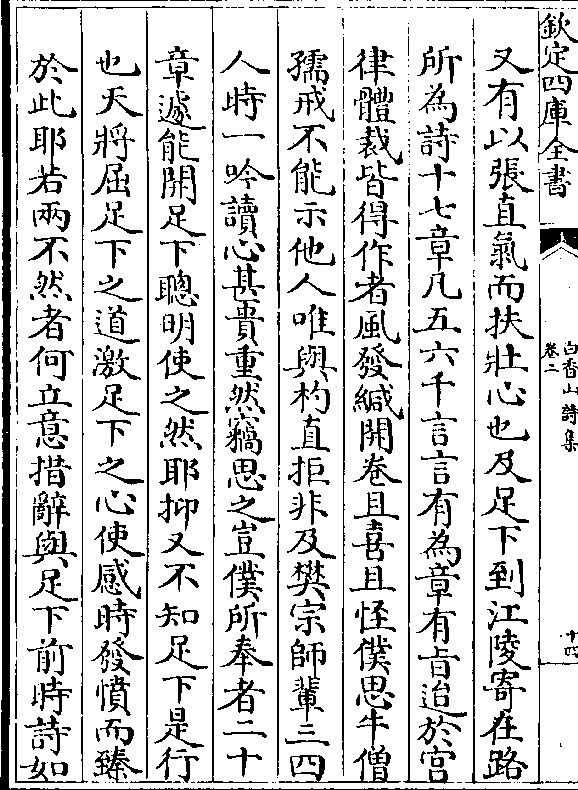 欽定四庫全書
白香山詩集
卷二
十四
又有以張直氣而扶壯心也及足下到江陵寄在路
所為詩十七章凡五六千言言有為章有旨迨於宫
律體裁皆得作者風發緘開卷且喜且怪僕思牛僧
孺戒不能示他人唯與杓直拒非及樊宗師輩三四
人時一吟讀心甚貴重然竊思之豈僕所奉者二十
章遽能開足下聰明使之然耶抑又不知足下是行
也天將屈足下之道激足下之心使感時發憤而臻
於此耶若兩不然者何立意措辭與足下前時詩如